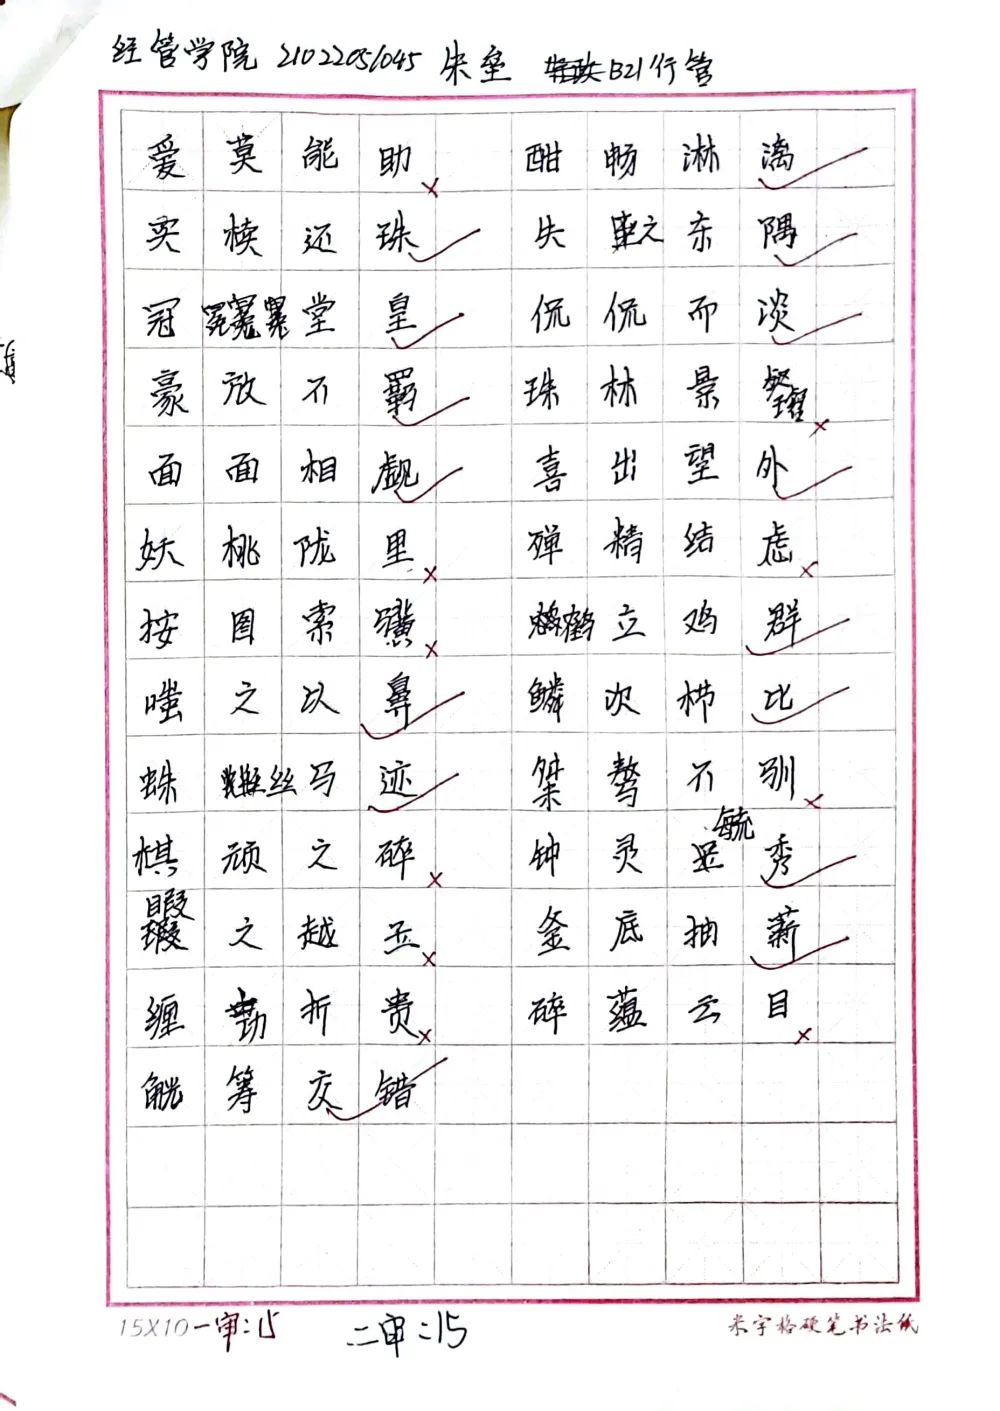 经管学院 21022051045 朱垒 B21行管
爱莫能助 酣畅淋漓
卖椟还珠 失之东隅
冠冕堂皇 侃侃而谈
豪放不羁 珠林景
面面相觑 喜出望外
妖桃陇里 殚精结虑
按图索骥 鹤立鸡群
嗤之以鼻 鳞次栉比
蛛丝马迹 桀骜不驯
棋顽之碎 钟灵毓秀
瑕之越玉 釜底抽薪
缠勤折贵 碎蕴云目
觥筹交错
15X10 一审:15 二审:15 米字格硬笔书法纸